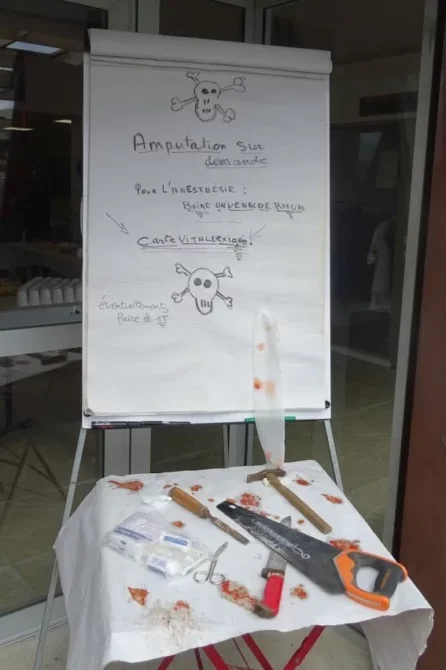 Amputation sur
demande
Pour l'Anesthésie :
Boire un verre Rhum
Carte Vitale exigée!
éventuellement
faire de